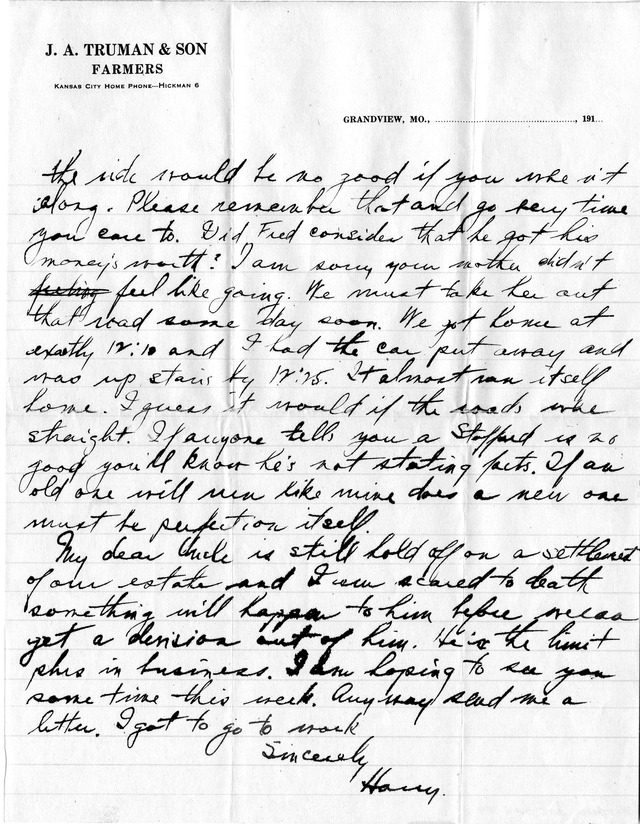 J. A. TRUMAN & SON
FARMERS
KANSAS CITY HOME PHONE—HICKMAN 6
GRANDVIEW, MO., ........................................, 191...
the ride would be no good if you were n't
along. Please remember that and go every time
you care to. Did Fred consider that he got his
money's worth? I am sorry your mother didn't
feeling feel like going. We must take her out
that road some day soon. We got home at
exactly 12:10 and I had the car put away and
was up stairs by 12:25. It almost ran itself
home. I guess it would if the roads were
straight. If anyone tells you a Stafford is no
good you'll know he's not stating facts. If an
old one will run like mine does a new one
must be perfection itself.
My dear Uncle is still hold off on a settlement
of our estate and I am scared to death
something will happen to him before we can
get a decision out of him. He is the limit
plus in business. I am hoping to see you
some time this week. Anyway send me a
letter. I got to go to work
Sincerely
Harry.